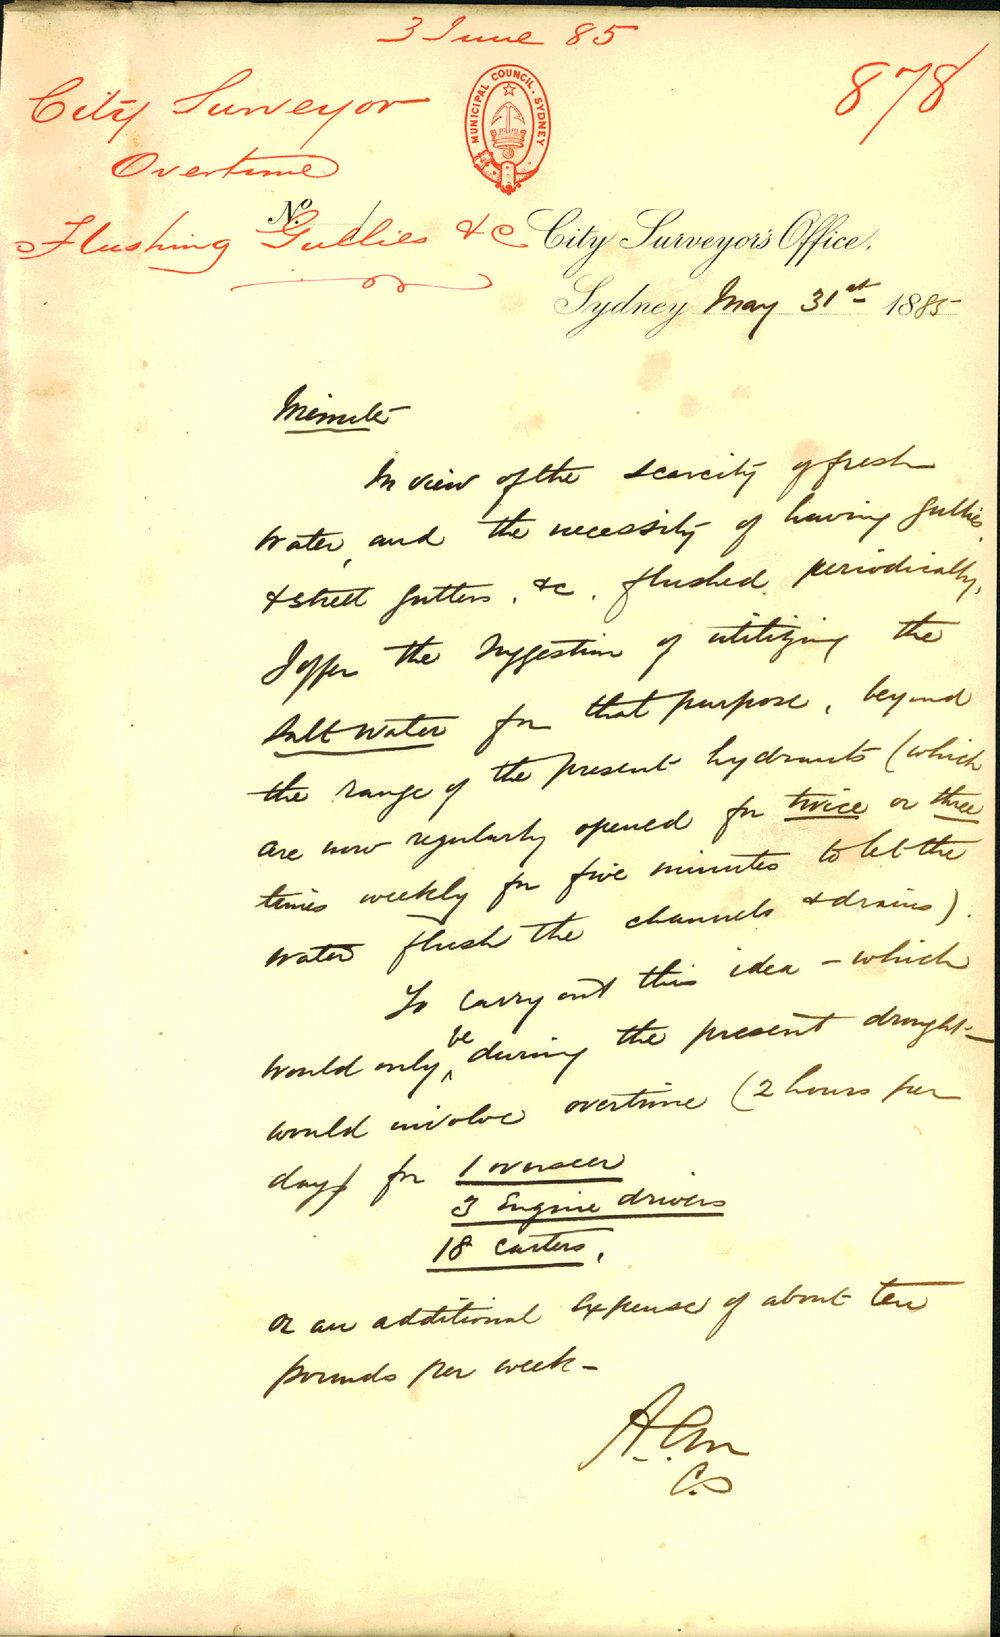 3 June 85
878
City Surveyor
Overtime
Flushing Gullies &c
MUNICIPAL COUNCIL. SYDNEY
No.
City Surveyor's Office.
Sydney May 31st 1885
Minute
In view of the scarcity of fresh
water, and the necessity of having gullies,
& street gutters, &c. flushed periodically,
I offer the suggestion of utilizing the
salt water for that purpose, beyond
the range of the present hydrants (which
are now regularly opened for twice or three
times weekly for five minutes to let the
water flush the channels & drains).
To carry out this idea - which
would only be during the present drought -
would involve overtime (2 hours per
day) for 1 overseer
3 Engine drivers
18 carters,
or an additional expense of about ten
pounds per week -
A.C.M
C.S